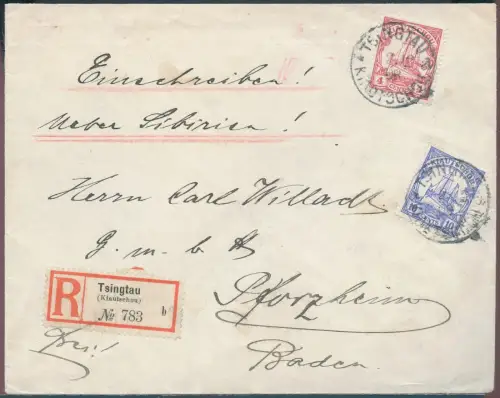 TSINGTAU
KIAUTSCHOU
Einschreiben!
Ueber Sibirien!
Herrn Carl Willadt
G. m. b. H
Pforzheim
Baden.
R
Tsingtau
(Kiautschou)
№ 783 b